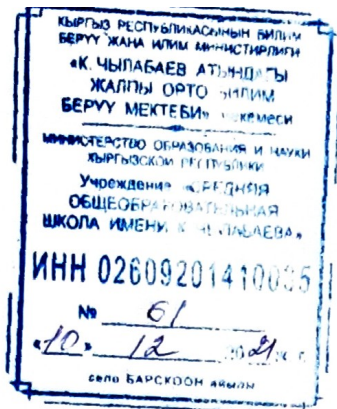 КЫРГЫЗ РЕСПУБЛИКАСЫНЫН БИЛИМ
БЕРҮҮ ЖАНА ИЛИМ МИНИСТИРЛИГИ
«К. ЧЫЛАБАЕВ АТЫНДАГЫ
ЖАЛПЫ ОРТО БИЛИМ
БЕРҮҮ МЕКТЕБИ» мекемеси
МИНИСТЕРСТВО ОБРАЗОВАНИЯ И НАУКИ
КЫРГЫЗСКОЙ РЕСПУБЛИКИ
Учреждение «СРЕДНЯЯ
ОБЩЕОБРАЗОВАТЕЛЬНАЯ
ШКОЛА ИМЕНИ К. ЧЫЛАБАЕВА»
ИНН 02609201410035
№ 61
«10» 12 2021 ж. г.
село БАРСКООН айылы